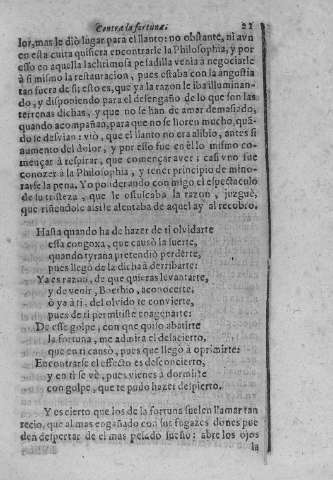 Contra la fortuna. 21
lor, mas le diò lugar para el llanto: no obstante, ni avn
en esta cuita quisiera encontrarle la Philosophia, y por
esso en aquella lachrimosa pesadilla venia a negociarle
à si mismo la restauracion, pues estaba con la angostia
tan fuera de si; esto es, que ya la razon le iba iluminan-
do, y disponiendo para el desengaño de lo que son las
terrenas dichas, y que no se han de amar demasiado,
quando acompañan, para que no se lloren mucho, quã-
do se desvian: viò, que el llanto no era alibio, antes si
aumento del dolor, y por esso fue en èl lo mismo co-
mençar à respirar, que començar a ver: casi vno fue
conozer à la Philosophia, y tener principio de mino-
rarse la pena. Yo ponderando con migo el espectaculo
de su tristeza, que le ofuscaba la razon, juzguè,
que riñendole assi le alentaba de aquel ay! al recobro.
Hasta quando ha de hazer de ti olvidarte
essa congoxa, que causò la suerte,
quando tyrana pretendiò perderte,
pues llegò de la dicha à derribarte:
Ya es razon, de que quieras levantarte,
y de venir, Boethio, a conocerte;
ò ya à ti, del olvido te convierte,
pues de ti permitiste enagenarte:
De esse golpe, con que quiso abatirte
la fortuna, me admira el desacierto,
que en ti causò, pues que llegò a oprimirte;
Encontrarse el effecto es desconcierto,
y en ti se vè, pues vienes à dormirte
con golpe, que te pudo hazer despierto.
Y es cierto que los de la fortuna suelen llamar tan
recio, que al mas engañado con sus fugazes dones pue
den despertar de el mas pesado sueño: abre los ojos
la